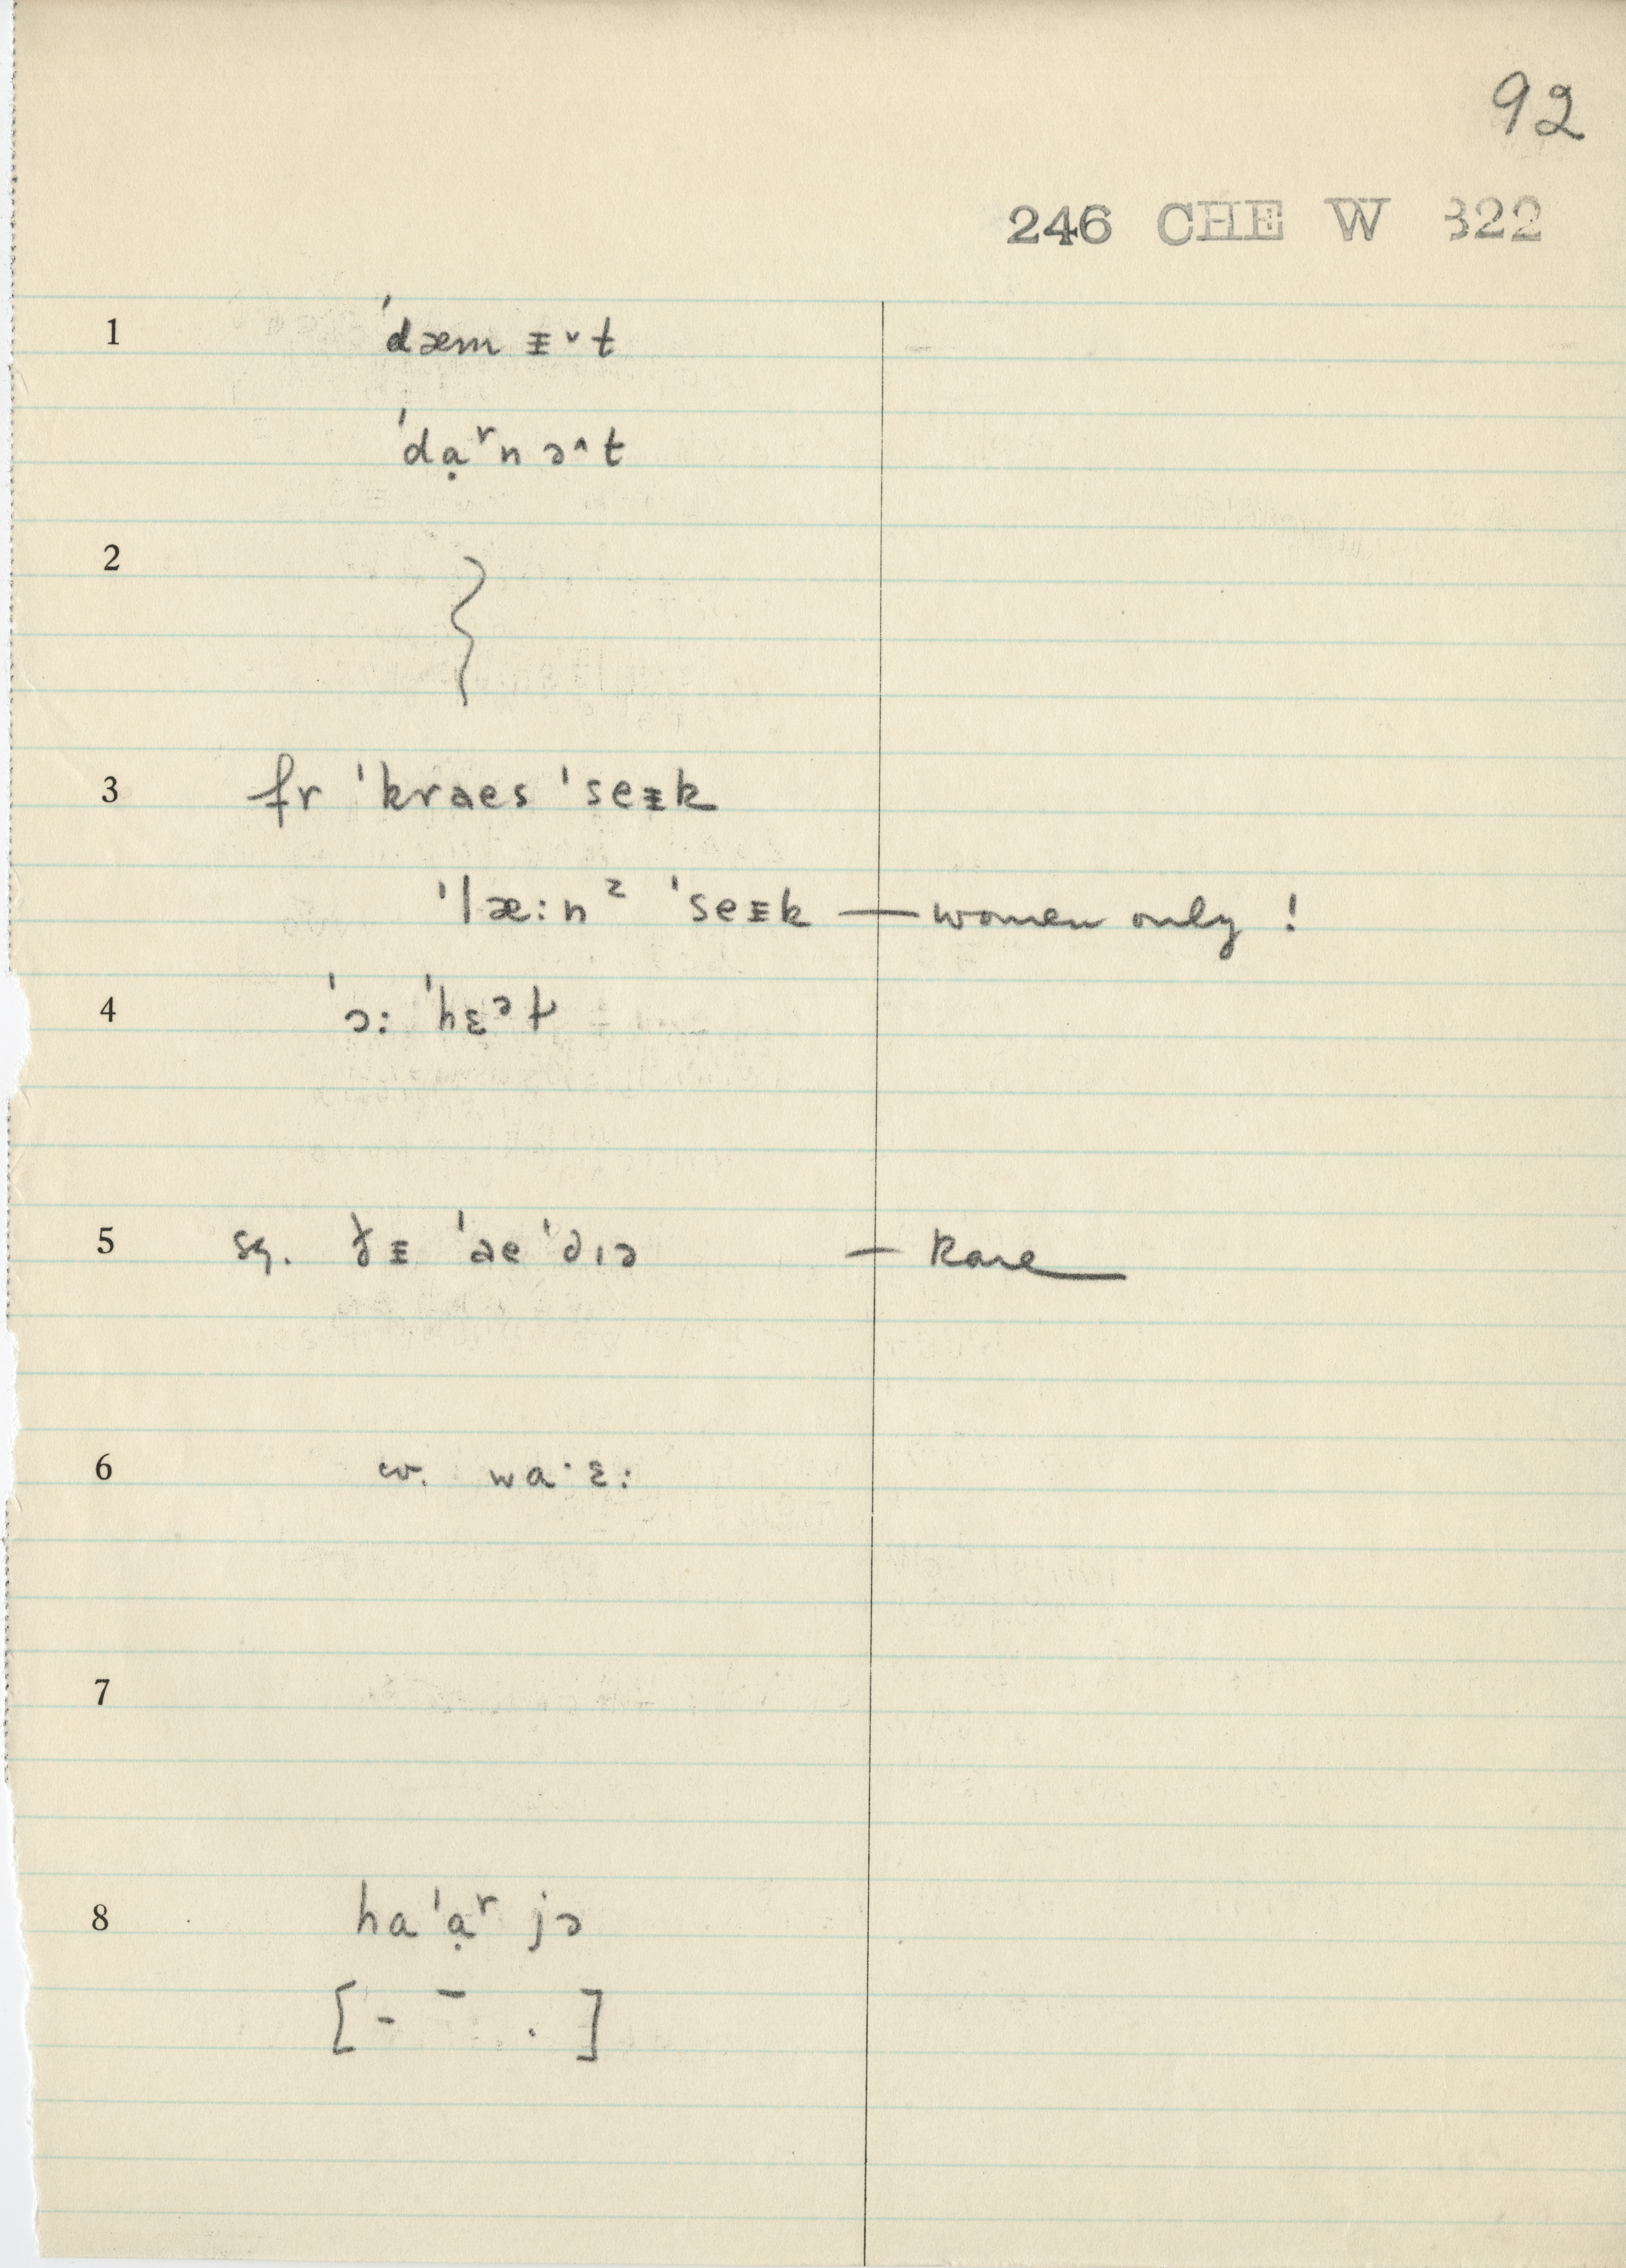 92
246 CHE W 322
1 ˈdæm ᵻ˅t
ˈdạʳn ə^t
2
3 fr ˈkraes ˈseᵻk
ˈlæ:nᶻ ˈseᵻk — women only !
4 ˈɔ: ˈhɛᵊt
5 sg. ðᵻ ˈae ˈdɪə — Rare
6 w. wa·ɛ:
7
8 haˈạʳ jə
[- ¯ . ]